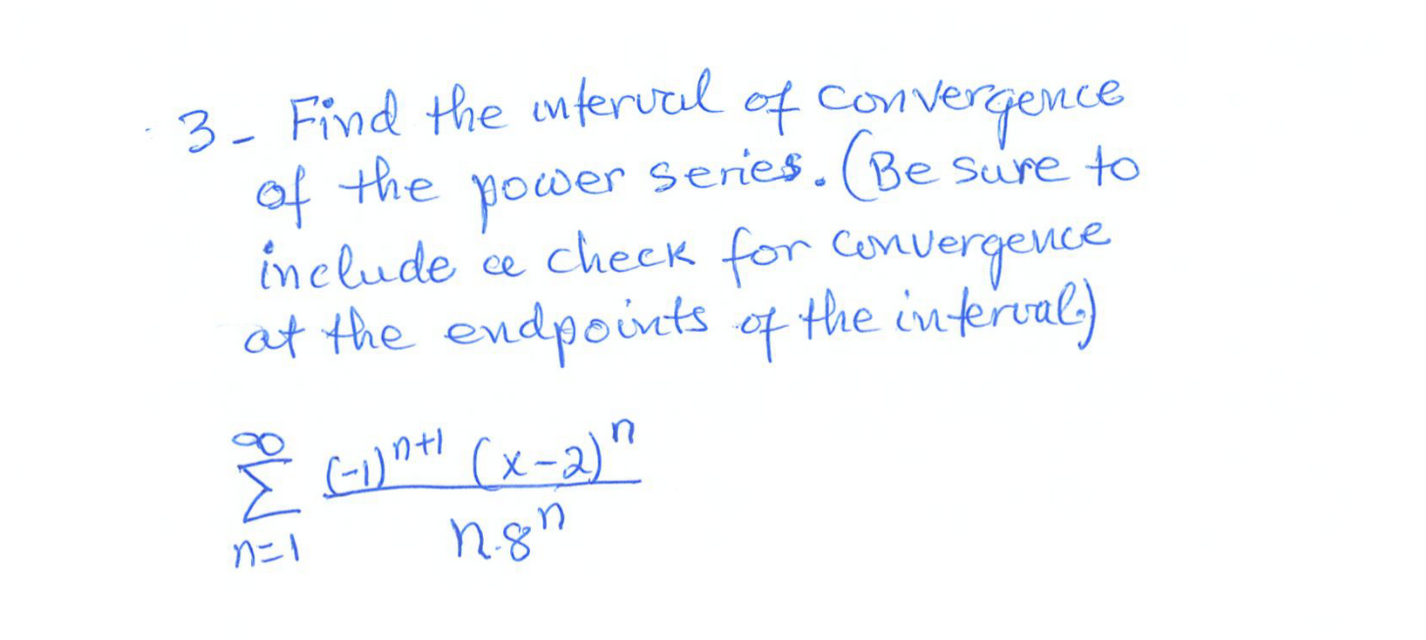 3- Find the interval of convergence
of the power series. (Be sure to
include a check for convergence
at the endpoints of the interval.)
∞
∑ (-1)^{n+1} (x-2)^n / n·8^n
n=1